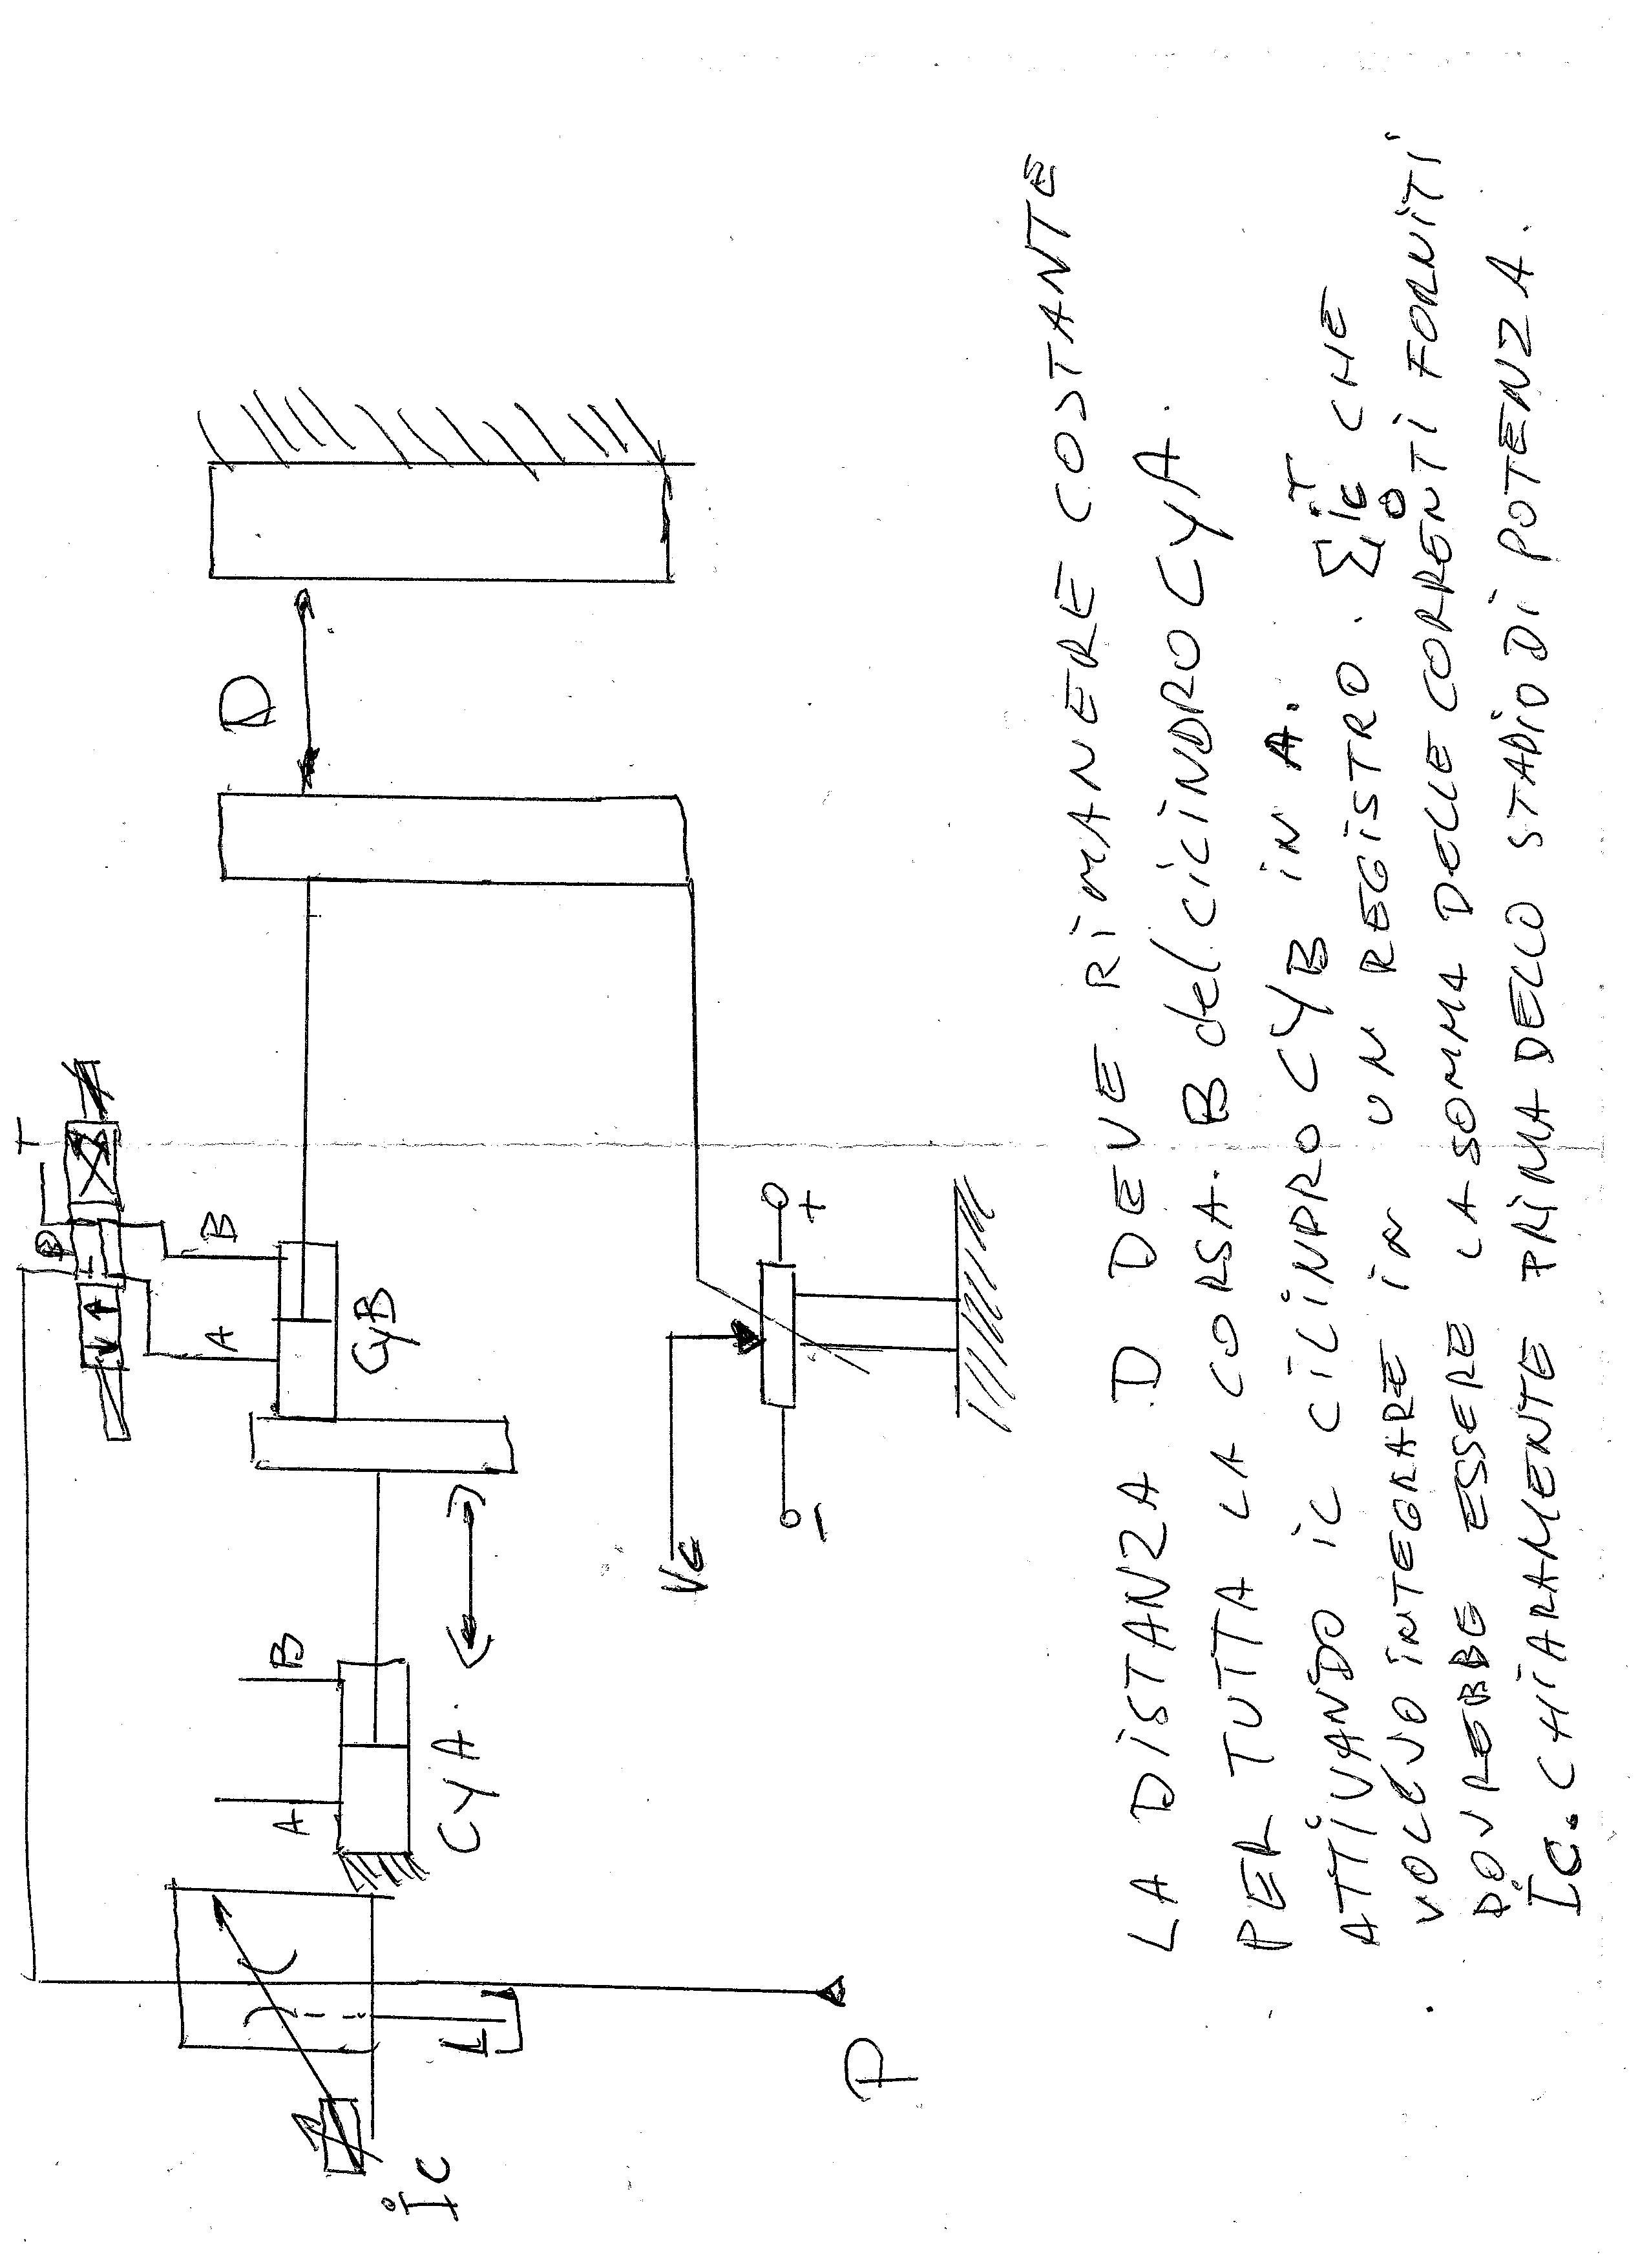 T
P
B
A
CyB
D
B
A
CyA.
Ic
L
P
Vc
+
-
LA DISTANZA D DEVE RIMANERE COSTANTE
PER TUTTA LA CORSA. B del CILINDRO CYA.
ATTIVANDO IL CILINDRO CYB IN A.
VOLEVO INTEGRARE IN UN REGISTRO. Σ Ic T O CHE
DOVREBBE ESSERE LA SOMMA DELLE CORRENTI FORNITI
Ic. CHIARAMENTE PRIMA DELLO STADIO DI POTENZA.